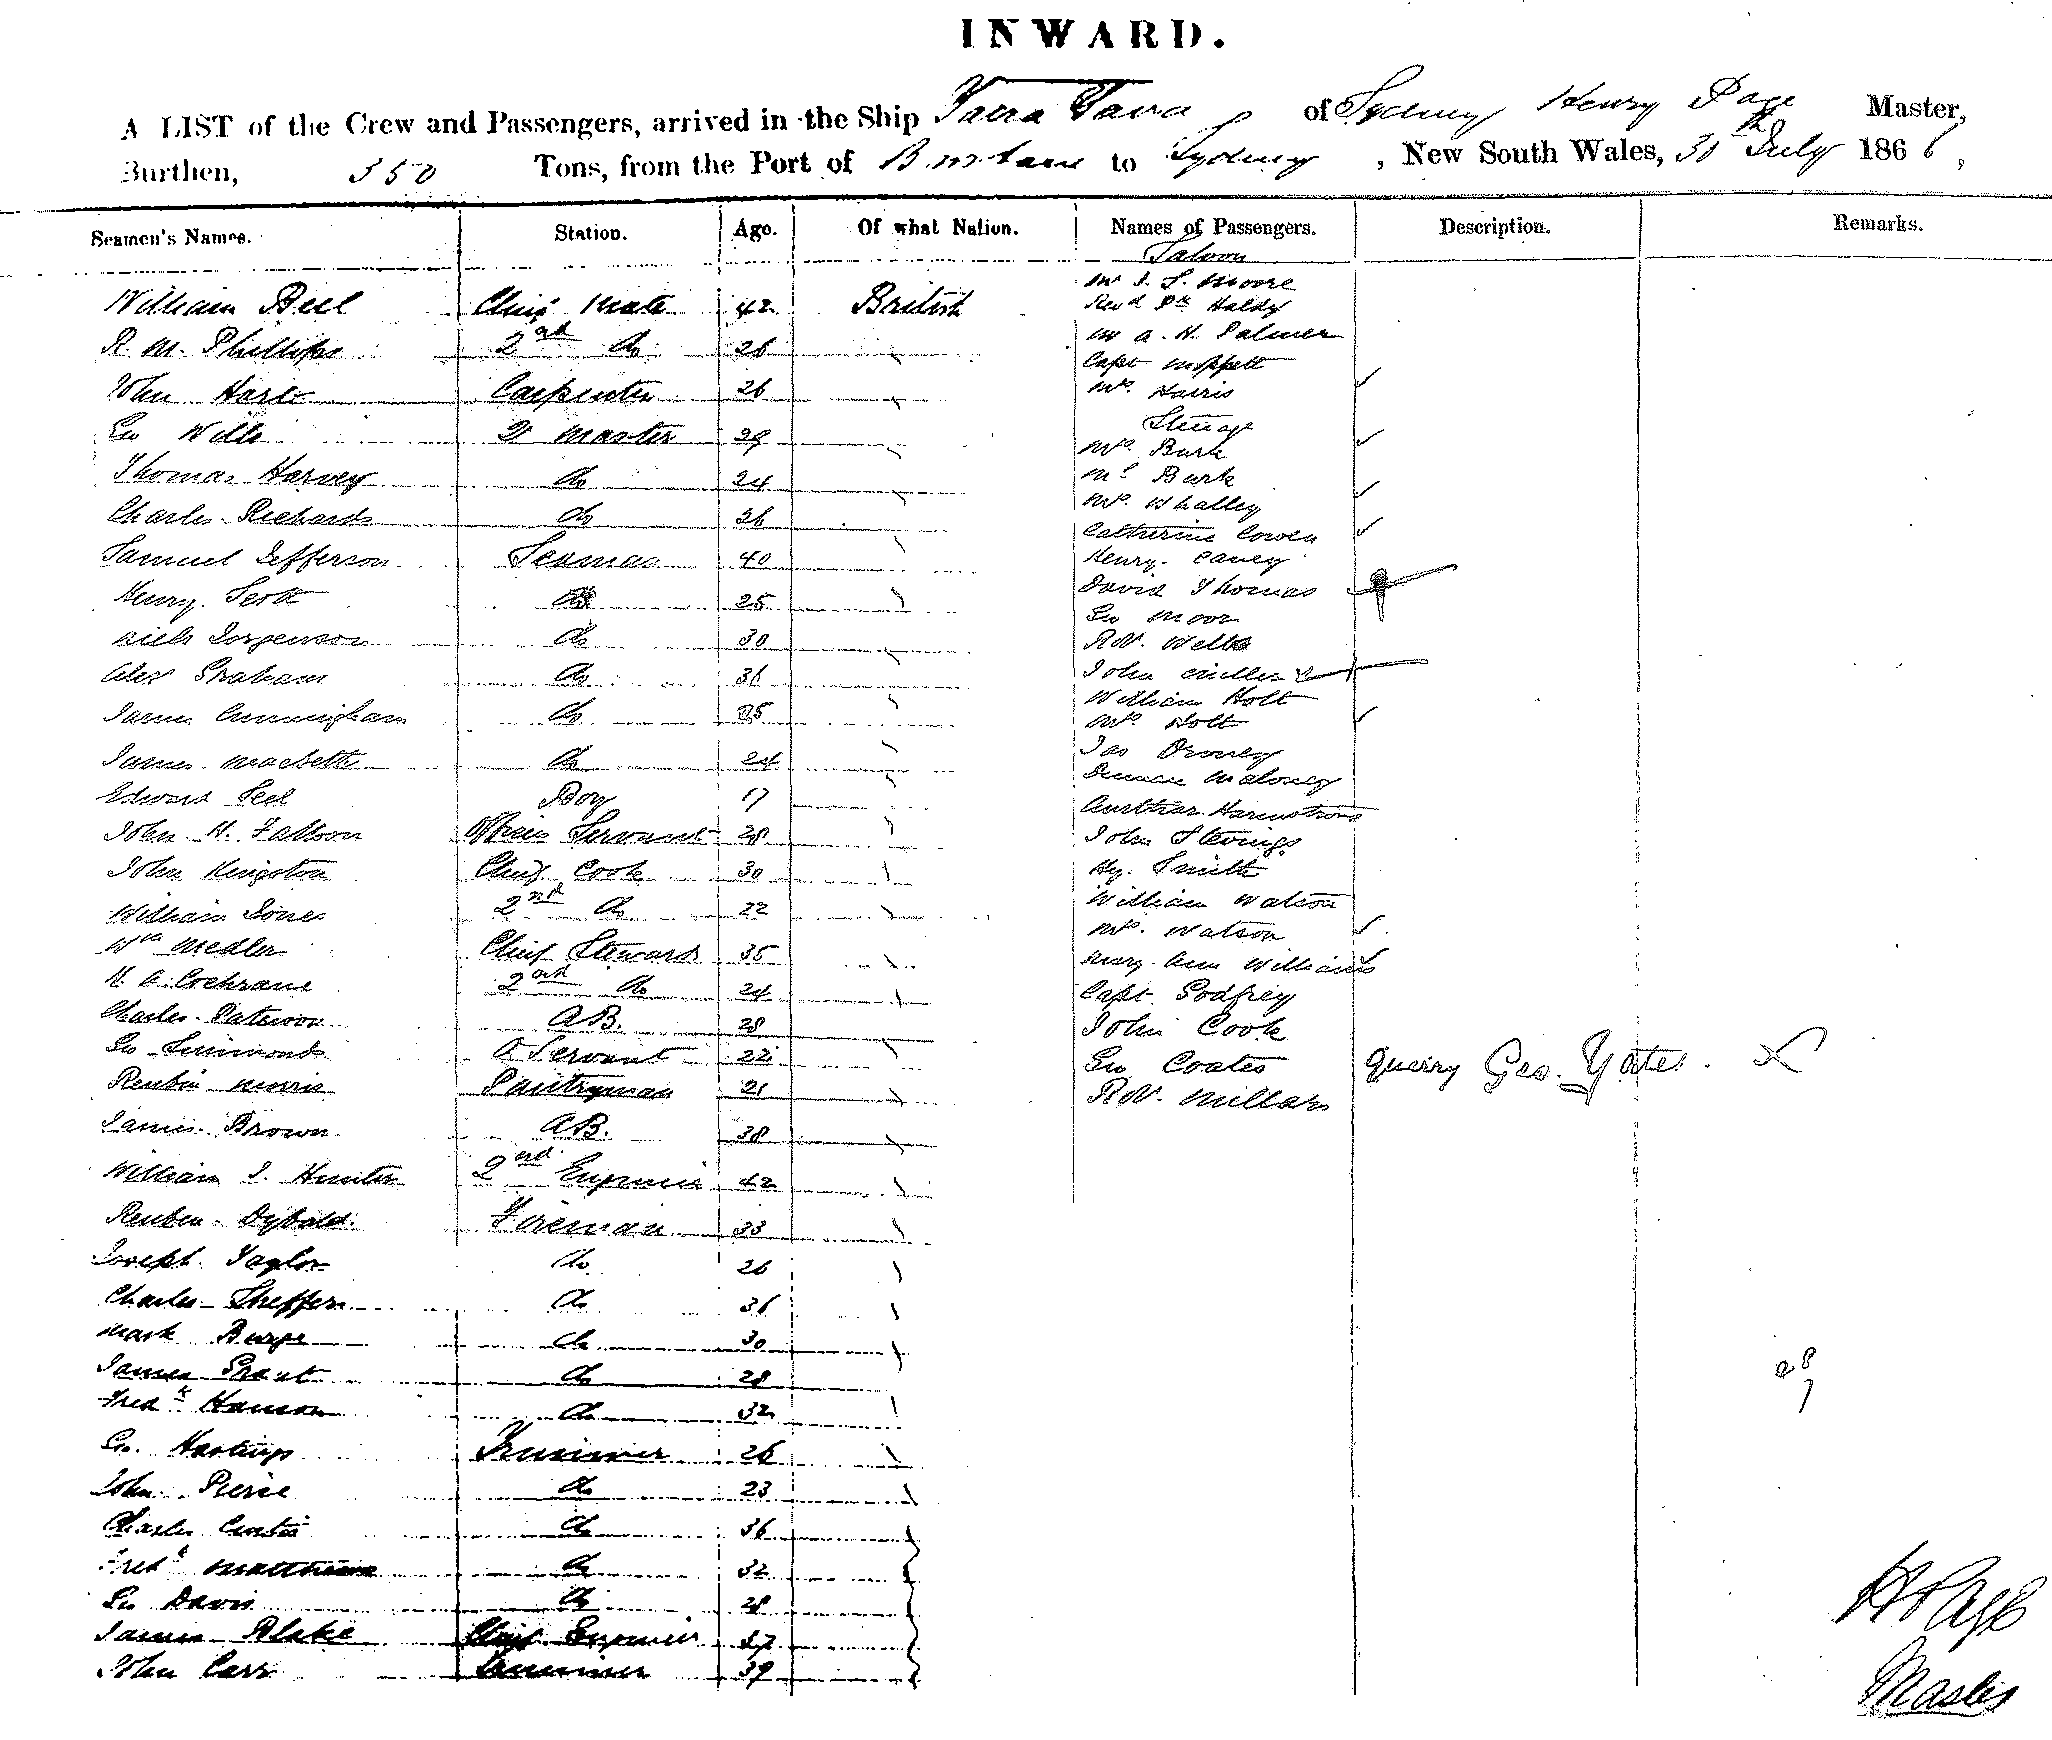 INWARD.
A LIST of the Crew and Passengers, arrived in the Ship Yarra Yarra of Sydney Henry Page Master,
Burthen, 350 Tons, from the Port of Brisbane to Sydney, New South Wales, 30th July 1866,
Seamen's Names. Station. Age. Of what Nation. Names of Passengers. Description. Remarks.
William Bell Chief Mate 42 British
R. M. Phillips 2nd Do 26
John Hart Carpenter 26
Geo Wills Q Master 29
Thomas Harvey Do 24
Charles Richards Do 36
Samuel Jefferson Seaman 40
Henry Scott Do 25
Niels Jorgenson Do 30
Alex Graham Do 36
James Cunningham Do 25
James Macbeth Do 24
Edward Peel Boy 17
John H. Falloon Officers Servant 28
John Kingston Chief Cook 30
William Jones 2nd Do 22
Wm Medler Chief Steward 35
H. A. Cochrane 2nd Do 24
Charles Paterson A.B. 28
Geo Simmonds O Servant 22
Reubin Morris Pantryman 21
James Brown A.B. 38
William J. Hunter 2nd Engineer 42
Reuben Dybald Fireman 33
Joseph Taylor Do 26
Charles Sheffern Do 36
Mark Burge Do 30
James Grant Do 28
Fredk Hanson Do 32
Geo. Hastings Trimmer 26
John Pierce Do 23
Charles Curtis Do 36
Fredk Matthews Do 32
Geo Davis Do 28
James Blake Chief Engineer 37
John Carr Trimmer 39
Saloon
Mr J. S. Moore
Revd Dr Haldy
Mr A. H. Palmer
Capt Moppett
Mrs. Harris
Steerage
Mrs. Burk
Mr Burk
Mrs. Whalley
Catherine Cowen
Henry Caney
David Thomas
Geo Moor
Rt. Wells
John Miller
William Holt
Mrs. Holt
Jas Droney
Maloney
Aurthur Harmstrong
John Stevings
Hy. Smith
William Watson
Mrs. Watson
Mary Ann Williams
Capt. Godfrey
John Cook
Geo Coates querry Geo. Yates. X
Rt. Millar
28
7
H Page
Master